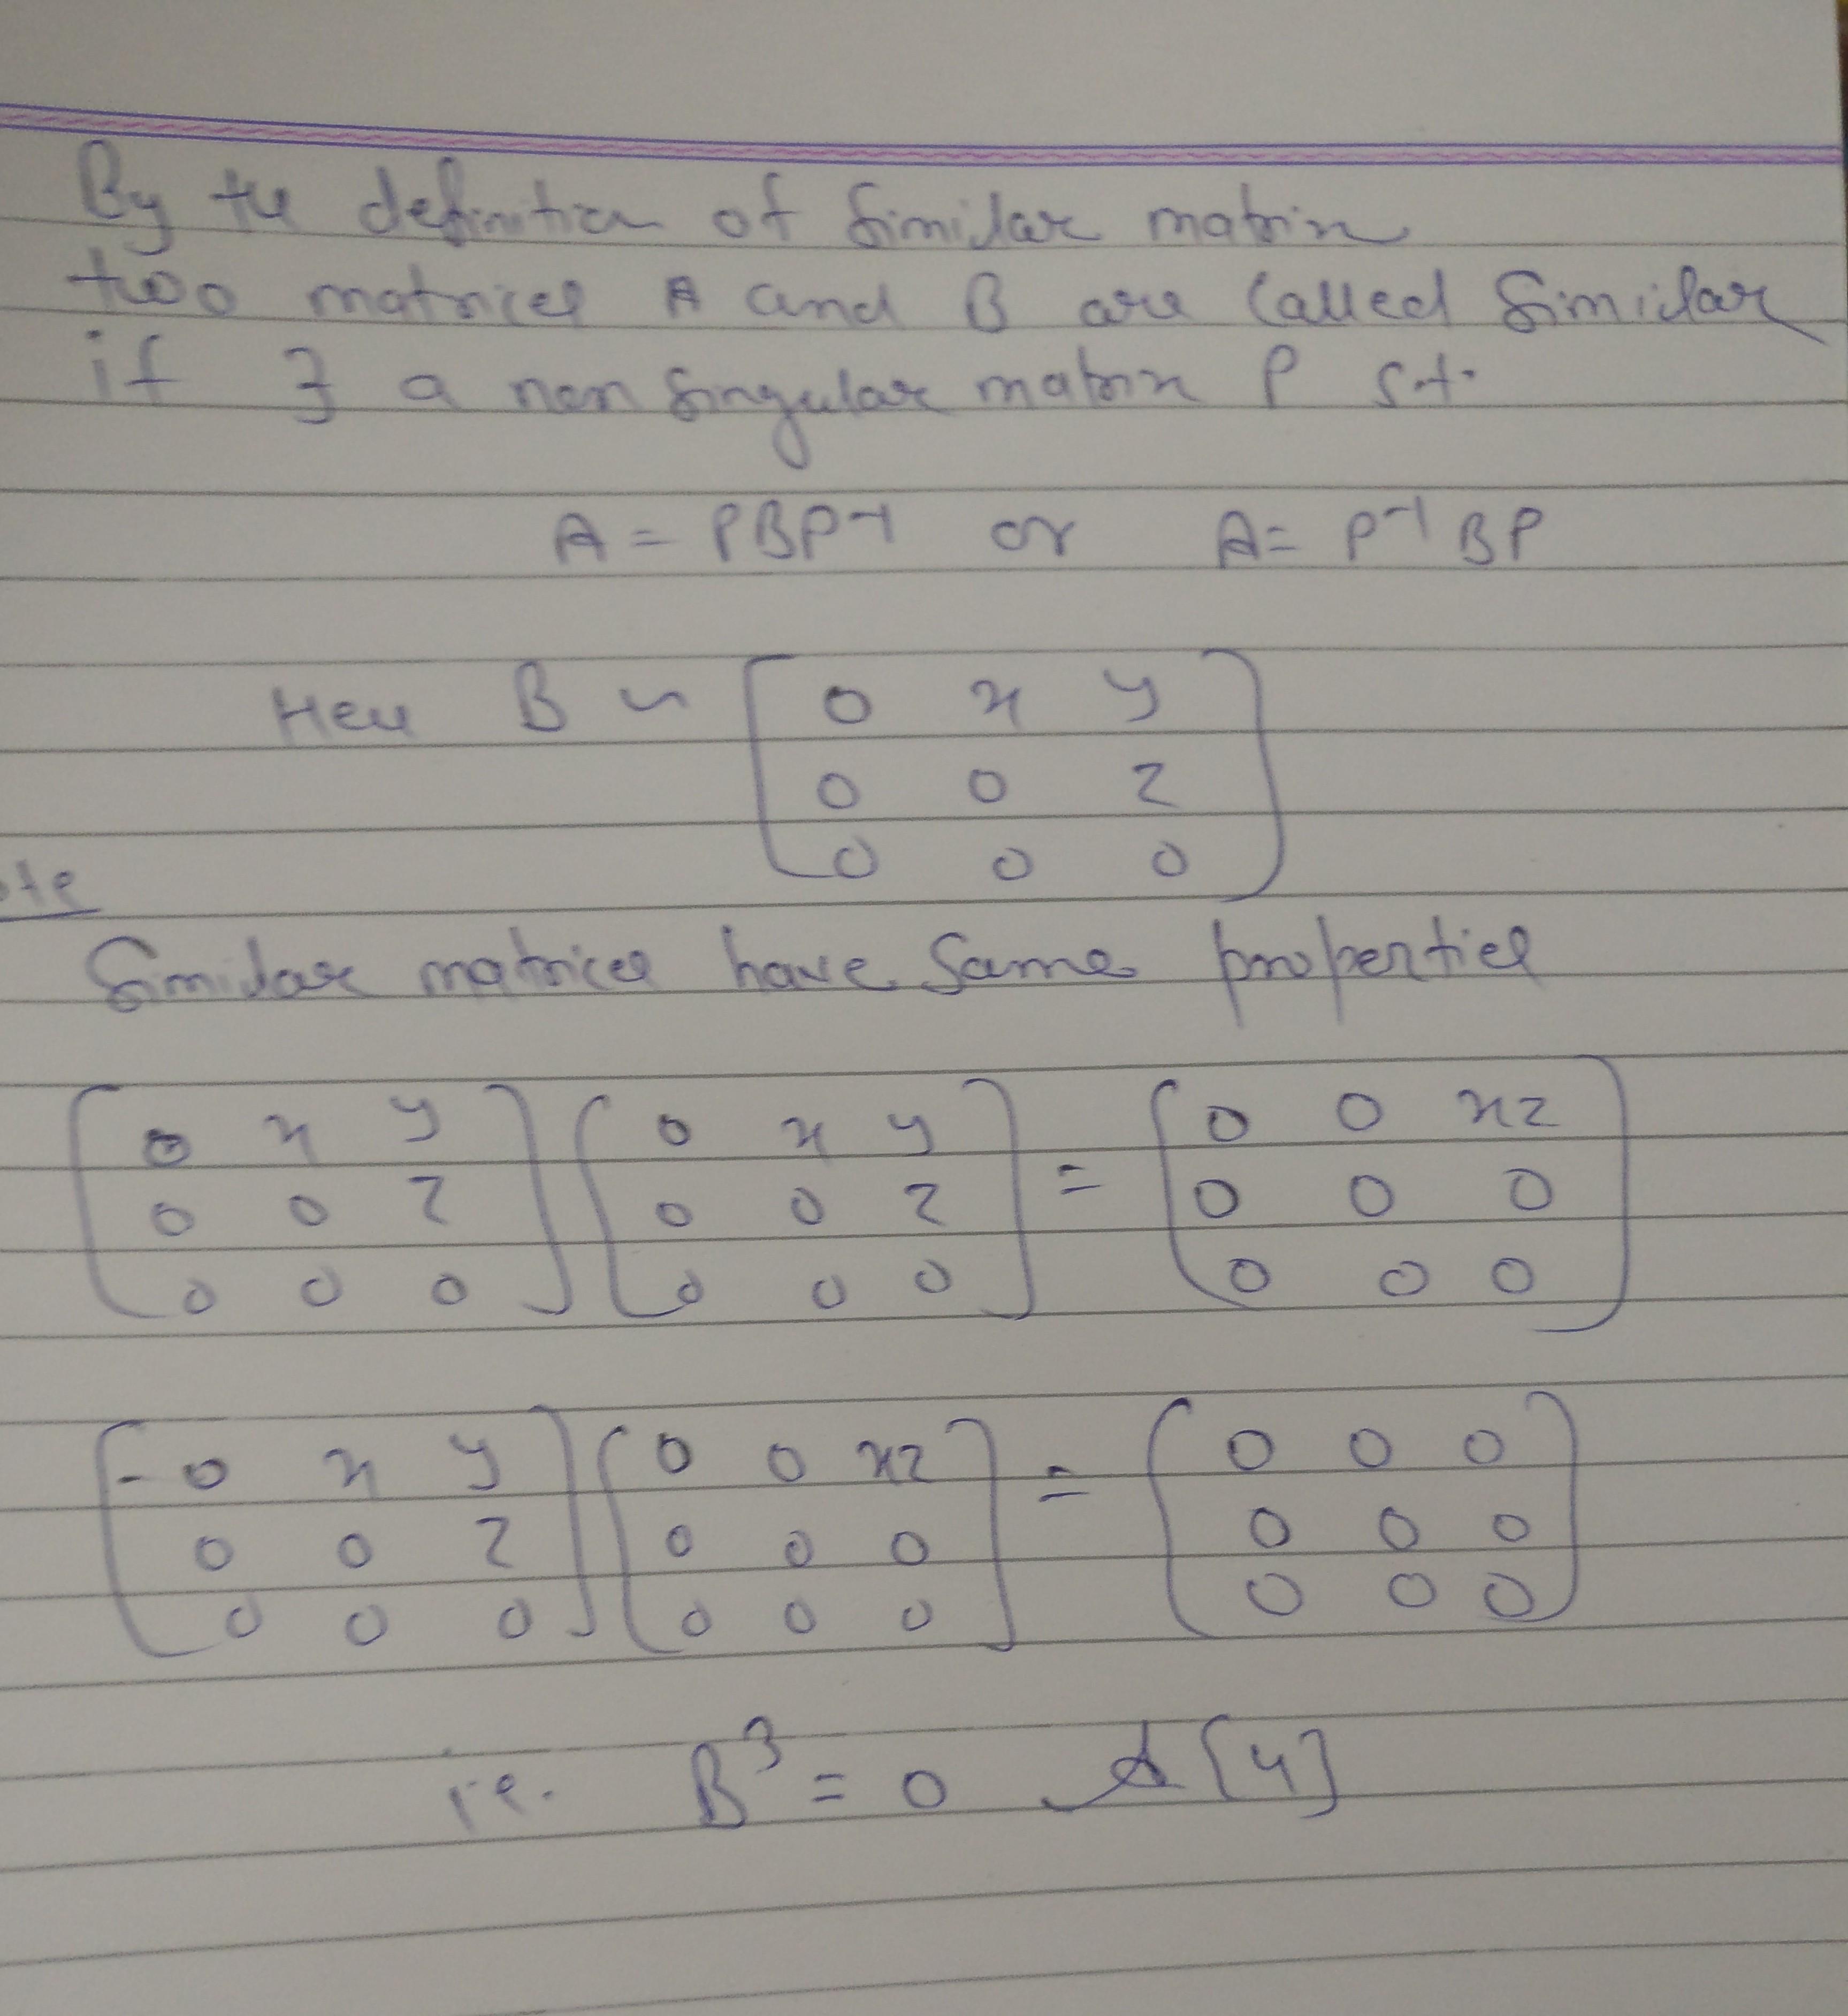 By the definition of Similar matrix
two matrices A and B are called Similar
if ∃ a non Singular matrix P s.t.
A = PBP⁻¹ or A = P⁻¹BP
Here B ~ [0 x y
0 0 z
0 0 0]
ote
Similar matrices have Same properties
[0 x y] [0 x y] = [0 0 xz]
[0 0 z] [0 0 z] [0 0 0]
[0 0 0] [0 0 0] [0 0 0]
[0 x y] [0 0 xz] = [0 0 0]
[0 0 z] [0 0 0] [0 0 0]
[0 0 0] [0 0 0] [0 0 0]
i.e. B³ = 0 [4]